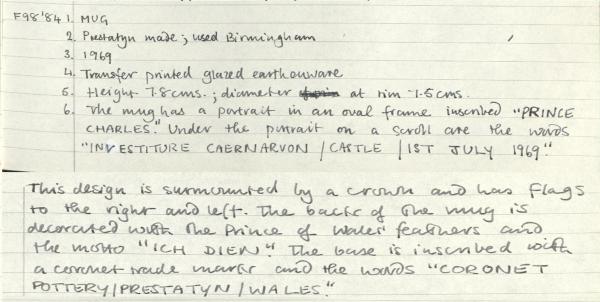 F98'84 1. MUG
2. Prestatyn made; used Birmingham
3. 1969
4. Transfer printed glazed earthenware
5. Height 7.8cms.; diameter at rim 7.5cms.
6. The mug has a portrait in an oval frame inscribed "PRINCE
CHARLES." Under the portrait on a scroll are the words
"INVESTITURE CAERNARVON / CASTLE / 1ST JULY 1969."
This design is surmounted by a crown and has flags
to the right and left. The back of the mug is
decorated with the Prince of Wales' feathers and
the motto "ICH DIEN." The base is inscribed with
a coronet trade mark and the words "CORONET
POTTERY / PRESTATYN / WALES."